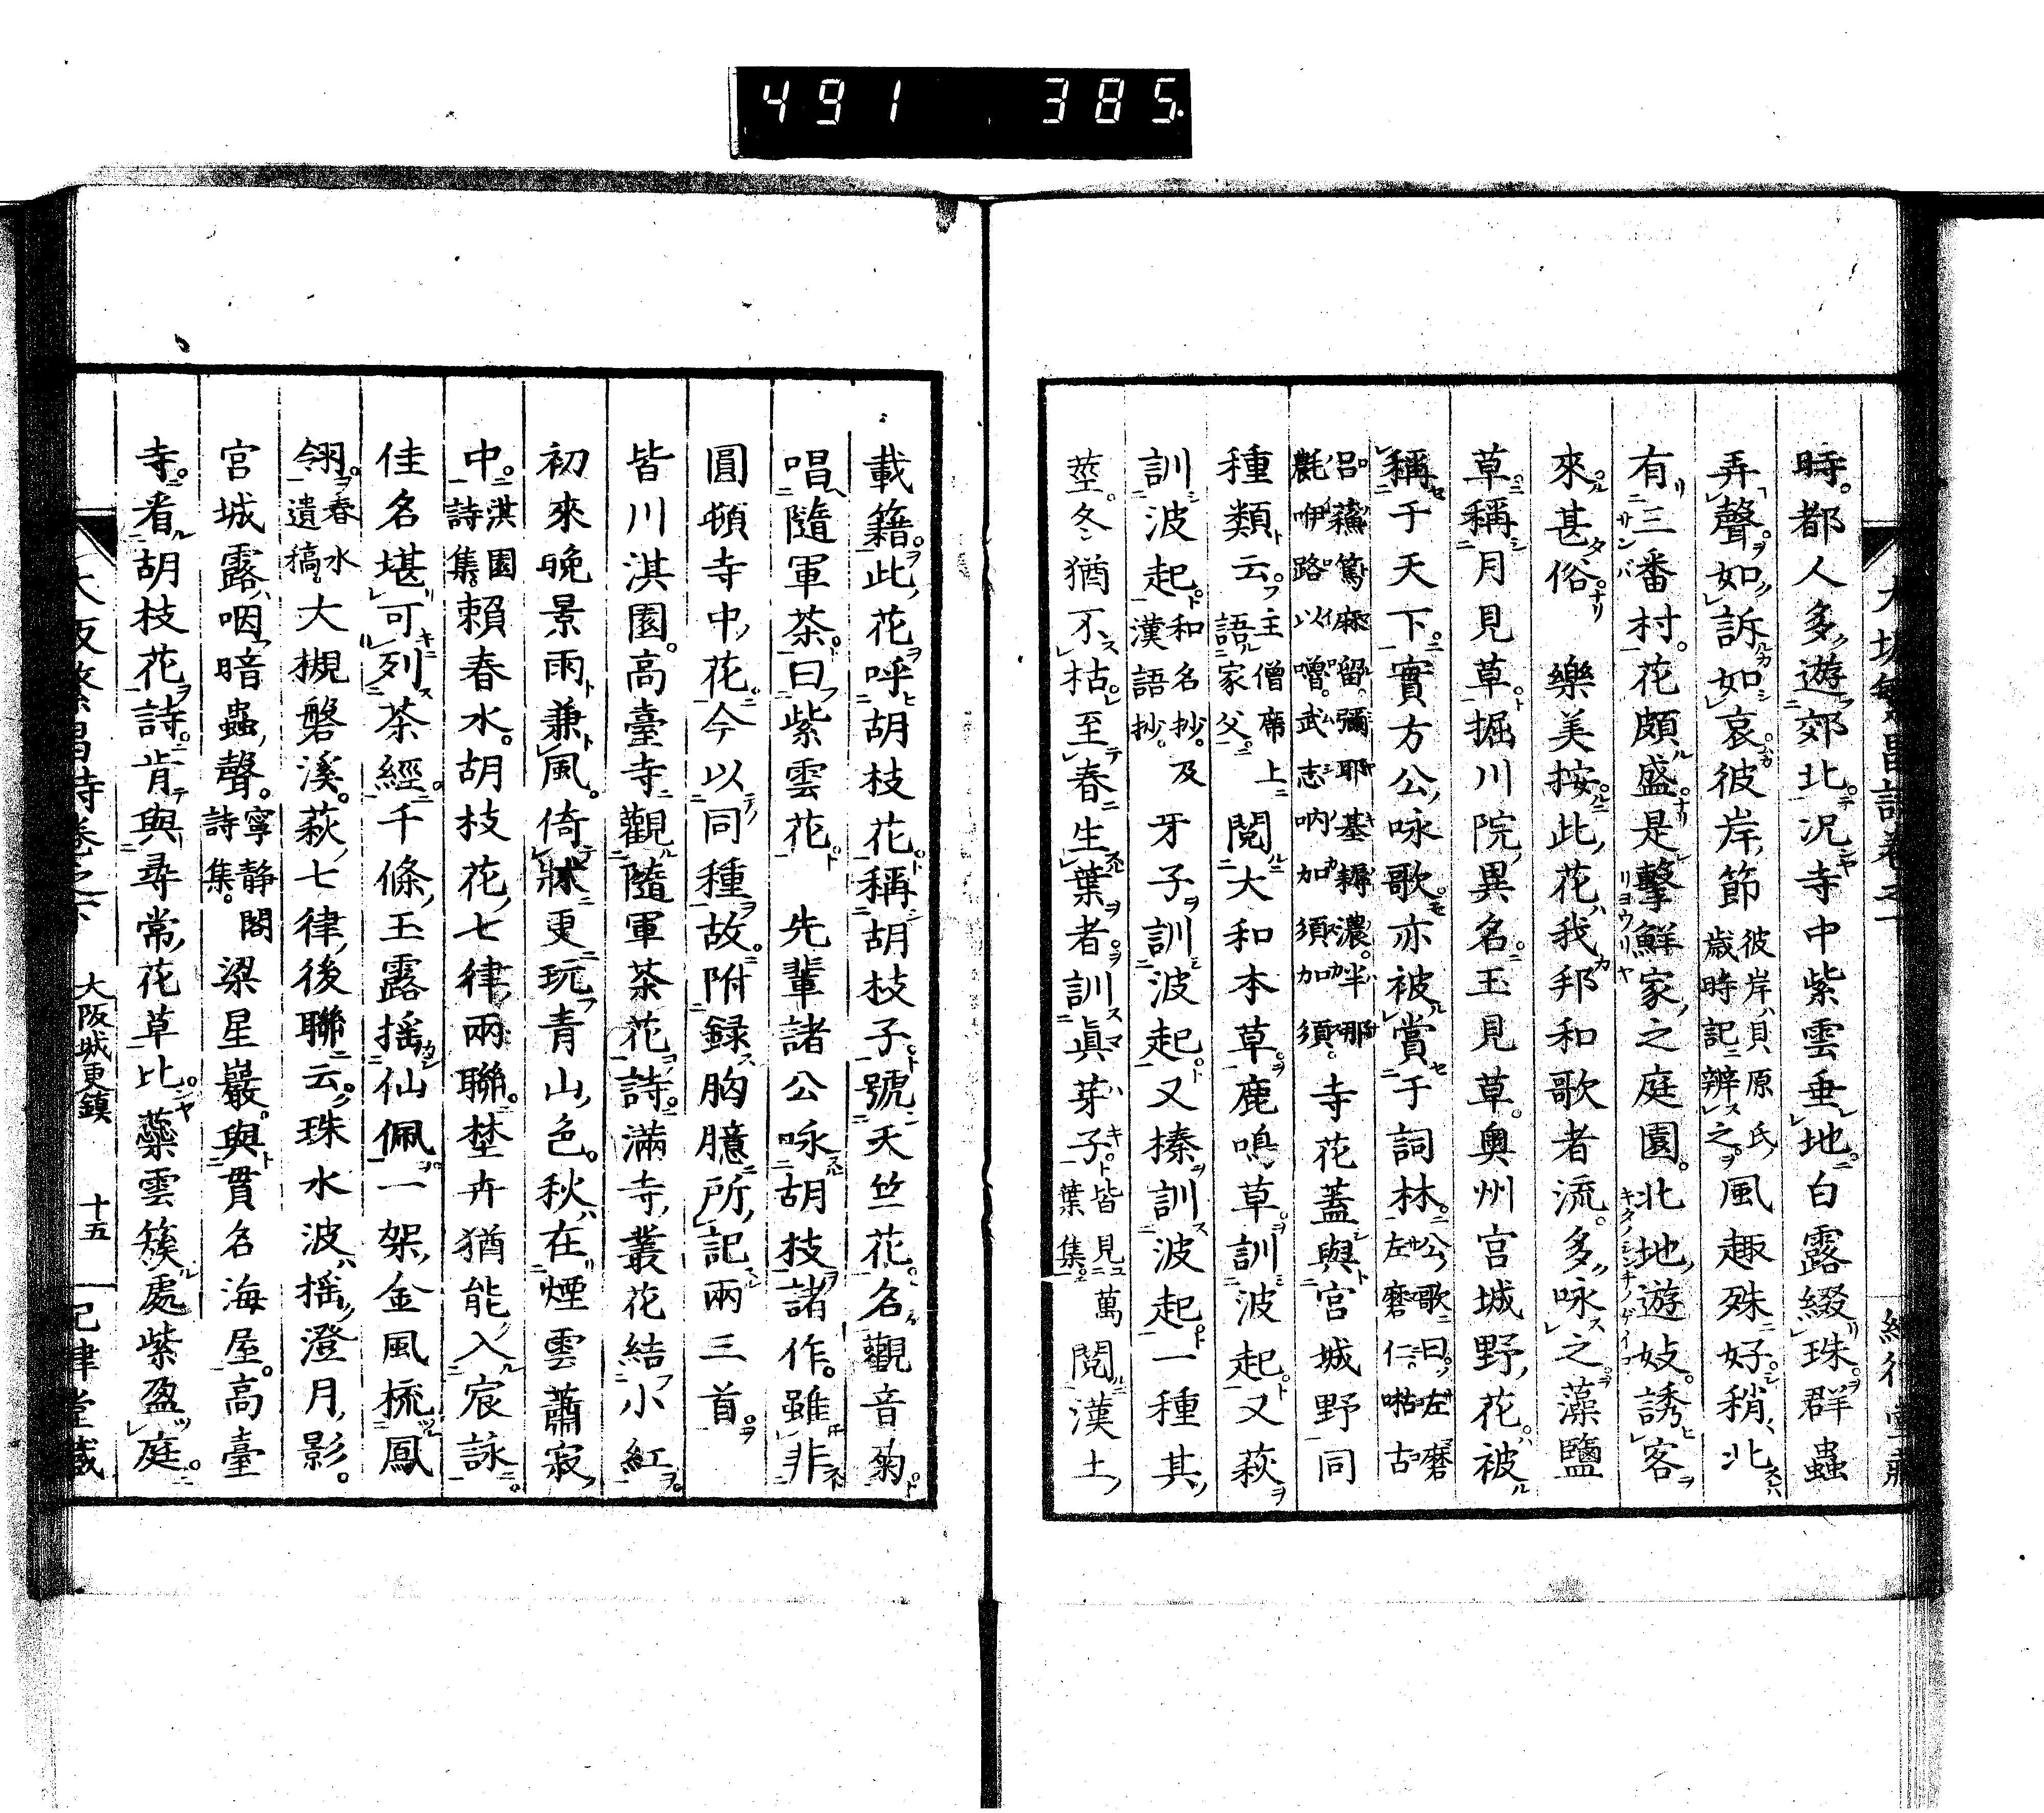 491 385
時。都人多遊郊北。況寺中紫雲垂地。白露綴珠。群蟲
弄聲。如訴如哀。彼岸節彼岸貝原氏歲時記辨之風趣殊好。稍北
有三番村。花頗盛。是擊鮮家之庭園。北地遊妓。誘客
來甚俗 樂美按。此花我邦和歌者流。多咏之。藻鹽
草。稱月見草。掘川院異名。玉見草。奧州宮城野花。被
稱于天下。實方公咏歌。亦被賞于詞林。公歌曰。左磨左磨仁。喈古
呂藕篤麻留。彌耶基耨濃。半那氈咿路以噌。武志吶加須加須。寺花蓋與宮城野同
種類云。主僧席上語家父。 閱大和本草。鹿鳴草。訓波起。又萩
訓波起。和名抄。及漢語抄。 牙子訓波起。又榛訓波起。一種其
莖。冬猶不枯。至春生葉者。訓眞芽子。皆見萬葉集。 閱漢土
載籍。此花呼胡枝花。稱胡枝子。號天竺花。名觀音菊。
唱隨軍茶。曰紫雲花。 先輩諸公咏胡枝諸作。雖非
圓頓寺中花。今以同種故。附録胸臆所記兩三首。
皆川淇園。高臺寺觀隨軍茶花詩。滿寺叢花結小紅。
初來晚景雨兼風。倚牀更玩青山色。秋在煙雲蕭寂
中。淇園詩集 賴春水。胡枝花七律兩聯。埜卉猶能入宸詠。
佳名堪可列茶經。千條玉露搖仙佩。一架金風梳鳳
翎。春水遺稿 大槻磐溪。萩七律後聯云。珠水波搖澄月影。
宮城露咽暗蟲聲。寧静閣詩集。 梁星巖。與貫名海屋。高臺
寺。看胡枝花詩。肯與尋常花草比。藥雲簇處紫盈庭。
大阪繁昌詩卷之下 大阪城更鎮 十五